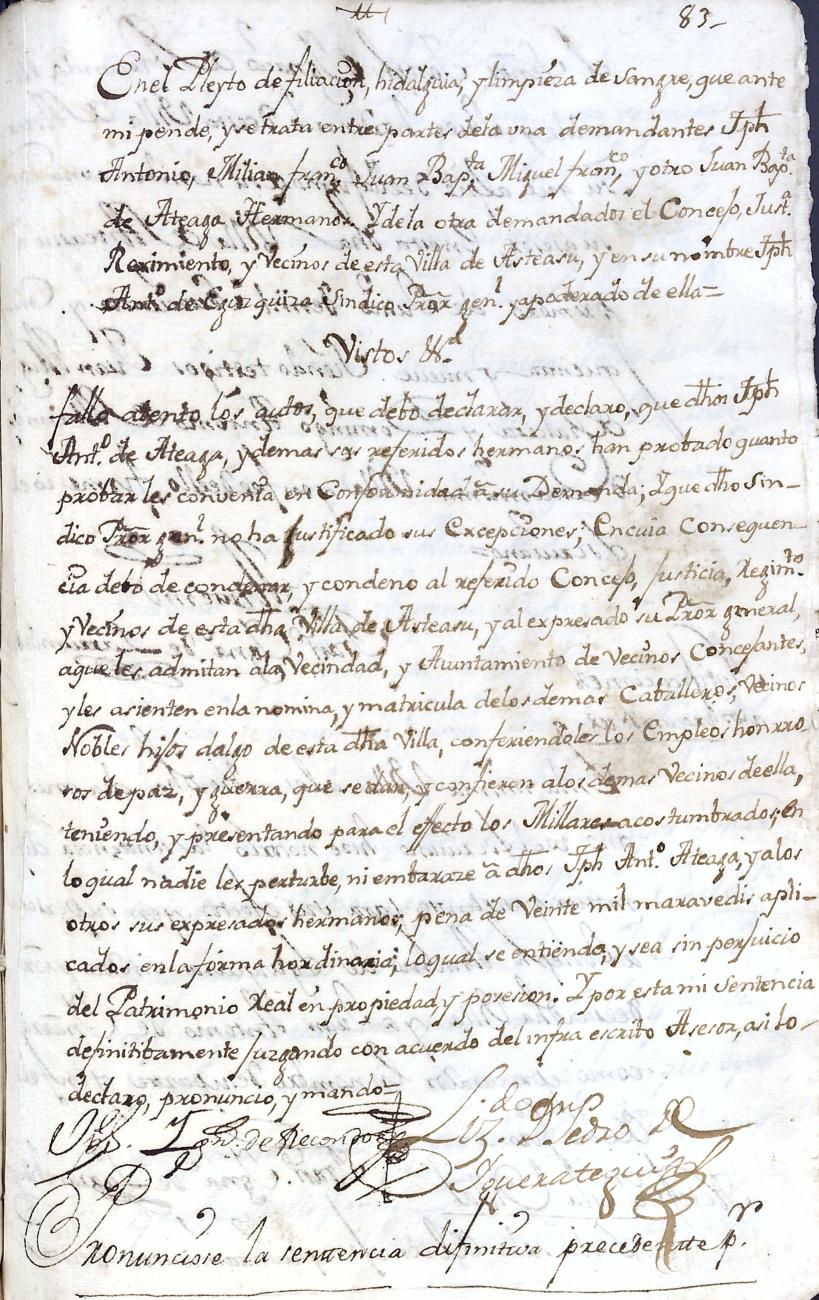 83-
En el Pleyto de filiacion, hidalguia, y limpieza de sangre, que ante
mi pende, y se trata entre partes dela una demandantes Jph
Antonio, Milian, franco, Juan Bapta Miguel franco, y otro Juan Bapta
de Ateaga Hermanos. Y dela otra demandados el Concejo, Justa
Reximiento, y Vecinos de esta Villa de Asteasu, y en su nombre Jph
Anto de Eguzquiza Sindico Pror genl y apoderado de ella=
Vistos &a
fallo atento los autos, que debo declarar, y declaro, que dhos Jph
Anto de Ateaga, y demas sus referidos hermanos han probado quanto
probar les convenia en Conformidad â su Demanda; Y que dho Sin-
dico Pror genl no ha Justificado sus Excepciones; En cuia Consequen-
cia debo de condenar, y condeno al referido Concejo, Justicia, Regimto
y Vecinos de esta dha Villa de Asteasu, y al expresado su Pror general,
a que les admitan ala Vecindad, y Aiuntamiento de Vecinos Concejantes,
y les asienten en la nomina, y matricula delos demas Caballeros, Vecinos
Nobles hijos dalgo de esta dha Villa, confeniendoles los Empleos honrro-
sos de paz, y guerra, que se dan, y confieren a los demas Vecinos de ella,
teniendo, y presentando para el effecto los Millares acostumbrados; en
lo qual nadie les perturbe, ni embaraze â dhos Jph Anto Ateaga, y a los
otros sus expresados hermanos, pena de Veinte mil maravedis apli-
cados en la forma hordinaria; lo qual se entienda, y sea sin perjuicio
del Patrimonio Real en propiedad, y posesion. Y por esta mi Sentencia
definitibamente Juzgando con acuerdo del infra escrito Asesor, asi lo
declaro, pronuncio, y mando=
de Recondo
Liz. Dn Pedro
Yguerategui
Pronunciose la sentencia difinitiva precedente pr.